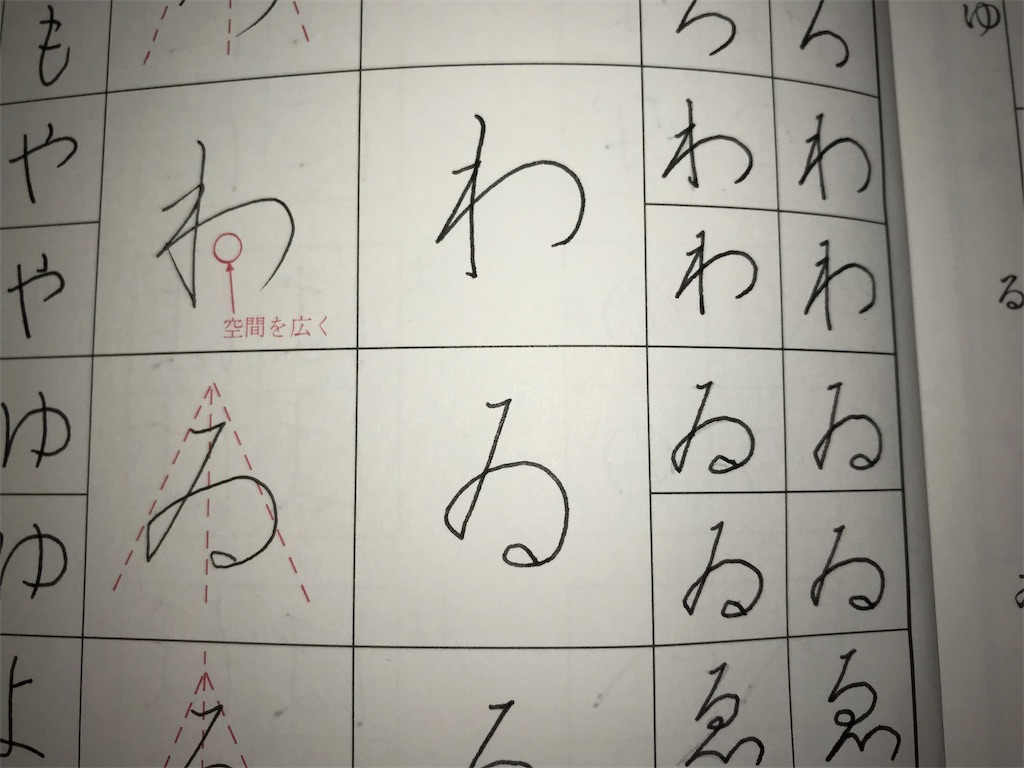 も
や わ わ わ わ
や わ わ
空間を広く
ゆ ゐ ゐ ゐ ゐ
ゆ ゐ ゐ
よ ゑ ゑ
ゆ
る